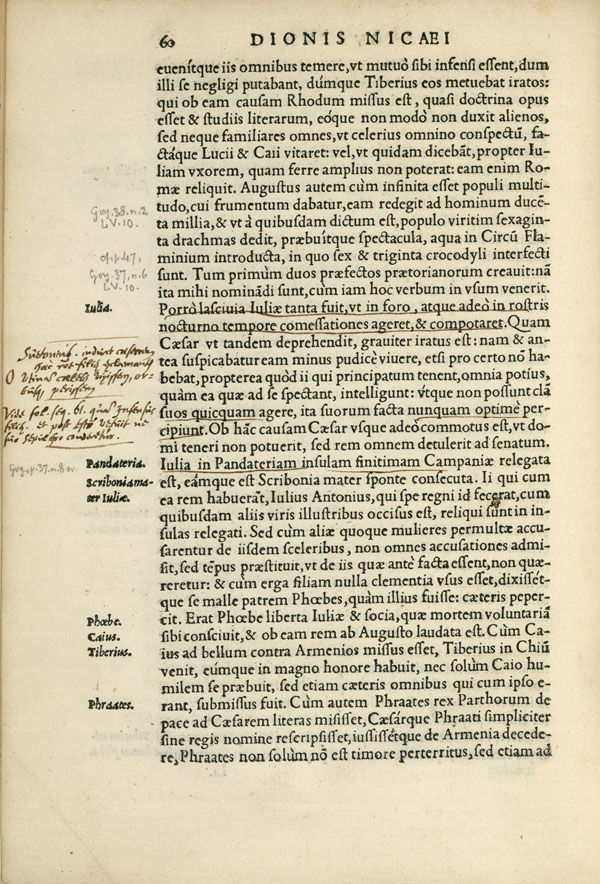 60 DIONIS NICAEI
euenítque iis omnibus temere, vt mutuò sibi infensi essent, dum
illi se negligi putabant, dúmque Tiberius eos metuebat iratos:
qui ob eam causam Rhodum missus est, quasi doctrina opus
esset & studiis literarum, eóque non modò non duxit alienos,
sed neque familiares omnes, vt celerius omnino conspectũ, fa-
ctáque Lucii & Caii vitaret: vel, vt quidam dicebãt, propter Iu-
liam vxorem, quam ferre amplius non poterat: eam enim Ro-
mæ reliquit. Augustus autem cùm infinita esset populi multi-
tudo, cui frumentum dabatur, eam redegit ad hominum ducẽ-
ta millia, & vt à quibusdam dictum est, populo viritim sexagin-
ta drachmas dedit, præbuítque spectacula, aqua in Circũ Fla-
minium introducta, in quo sex & triginta crocodyli interfecti
sunt. Tum primùm duos præfectos prætorianorum creauit: nã
ita mihi nominãdi sunt, cum iam hoc verbum in vsum venerit.
Iulia.
Porrò lasciuia Iuliæ tanta fuit, vt in foro, atque adeò in rostris
nocturno tempore comessationes ageret, & compotaret. Quam
Cæsar vt tandem deprehendit, grauiter iratus est: nam & an-
tea suspicabatur eam minus pudicè viuere, etsi pro certo nõ ha-
bebat, propterea quòd ii qui principatum tenent, omnia potius,
quàm ea quæ ad se spectant, intelligunt: vtque non possunt clã
suos quicquam agere, ita suorum facta nunquam optimè per-
cipiunt. Ob hãc causam Cæsar vsque adeò commotus est, vt do-
mi teneri non potuerit, sed rem omnem detulerit ad senatum.
Pandateria.
Iulia in Pandateriam insulam finitimam Campaniæ relegata
Scribonia ma-
est, eámque est Scribonia mater sponte consecuta. Ii qui cum
ter Iuliæ.
ea rem habuerãt, Iulius Antonius, qui spe regni id fecerat, cum
quibusdam aliis viris illustribus occisus est, reliqui sunt in in-
sulas relegati. Sed cùm aliæ quoque mulieres permultæ accu-
sarentur de iisdem sceleribus, non omnes accusationes admi-
sit, sed tẽpus præstituit, vt de iis quæ antè facta essent, non quæ-
reretur: & cum erga filiam nulla clementia vsus esset, dixissét-
que se malle patrem Phœbes, quàm illius fuisse: cæteris peper-
Phœbe.
cit. Erat Phœbe liberta Iuliæ & socia, quæ mortem voluntariã
Caius.
sibi consciuit, & ob eam rem ab Augusto laudata est. Cùm Ca-
Tiberius.
ius ad bellum contra Armenios missus esset, Tiberius in Chiũ
venit, eúmque in magno honore habuit, nec solùm Caio hu-
milem se præbuit, sed etiam cæteris omnibus qui cum ipso e-
Phraates.
rant, submissus fuit. Cùm autem Phraates rex Parthorum de
pace ad Cæsarem literas misisset, Cæsárque Phraati simpliciter
sine regis nomine rescripsisset, iussissétque de Armenia decede-
re, Phraates non solùm nõ est timore perterritus, sed etiam ad